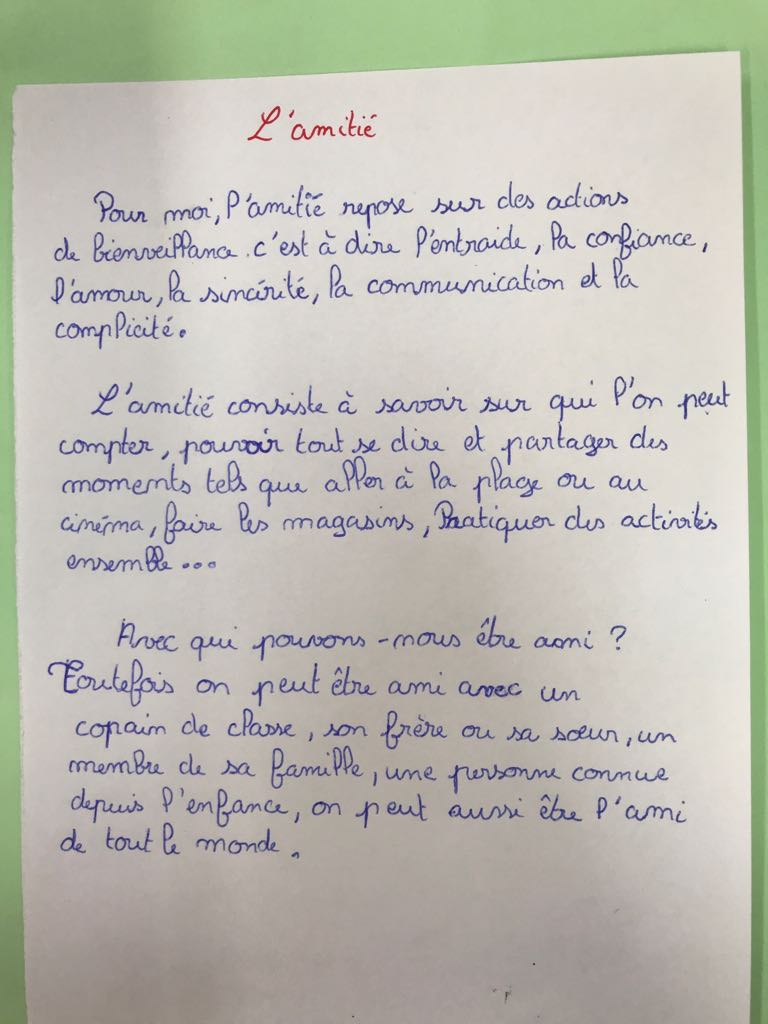 L'amitié
Pour moi, l'amitié repose sur des actions
de bienveillance. c'est à dire l'entraide, la confiance,
l'amour, la sincérité, la communication et la
complicité.
L'amitié consiste à savoir sur qui l'on peut
compter, pouvoir tout se dire et partager des
moments tels que aller à la plage ou au
cinéma, faire les magasins, Pratiquer des activités
ensemble...
Avec qui pouvons-nous être ami ?
Toutefois on peut être ami avec un
copain de classe, son frère ou sa sœur, un
membre de sa famille, une personne connue
depuis l'enfance, on peut aussi être l'ami
de tout le monde.